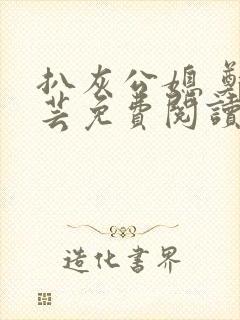 扒灰公媳 鄭
芸免費閱讀
造化書界